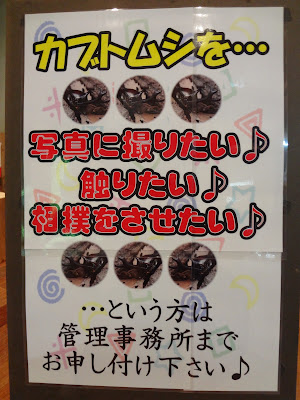 カブトムシを…
写真に撮りたい♪
触りたい♪
相撲をさせたい♪
…という方は
管理事務所まで
お申し付け下さい♪